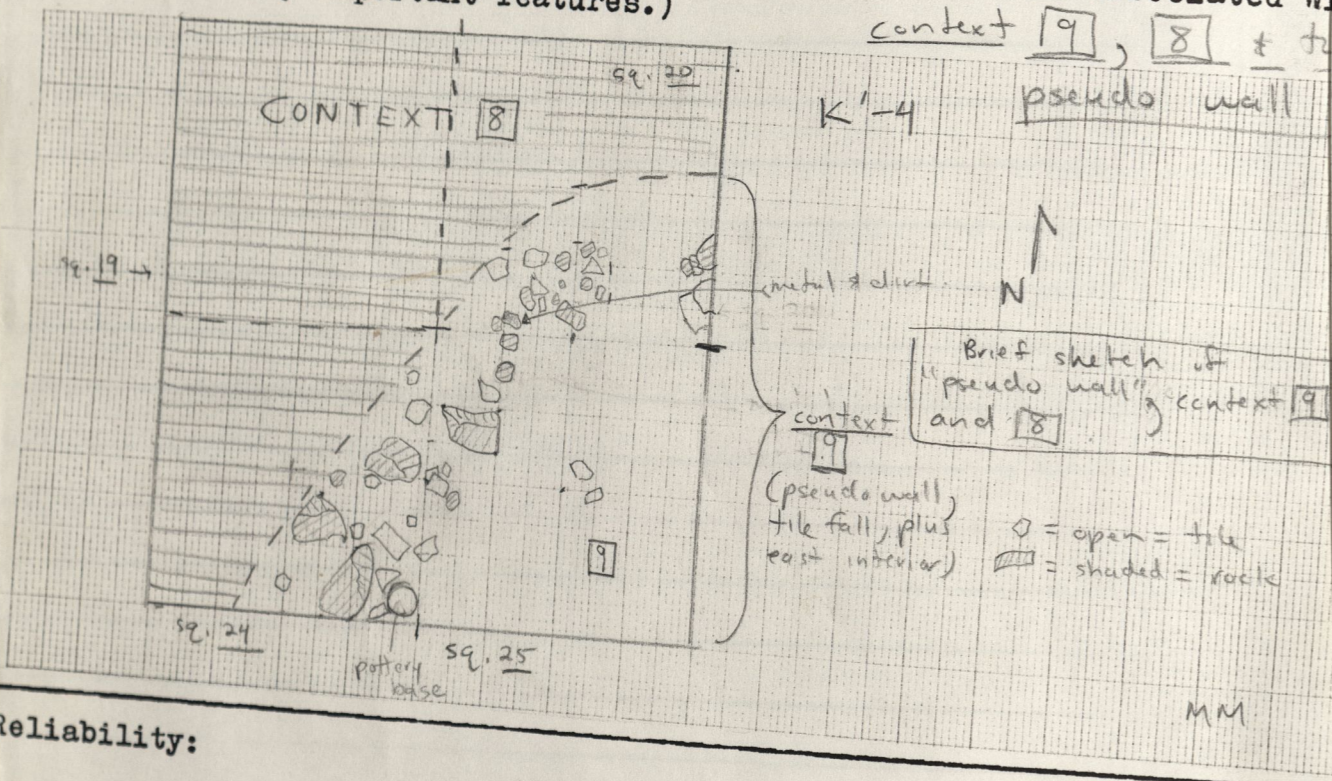 features.)
context 9, 8 &
pseudo wall
sq. 20
CONTEXT 8
K'-4
sq. 19 →
N
metal & dirt
Brief sketch of
"pseudo wall", context 9
and 8
context
9
(pseudo wall,
tile fall, plus
east interior)
= open = tile
= shaded = rock
9
sq. 24
sq. 25
pottery
base
MM
Reliability: